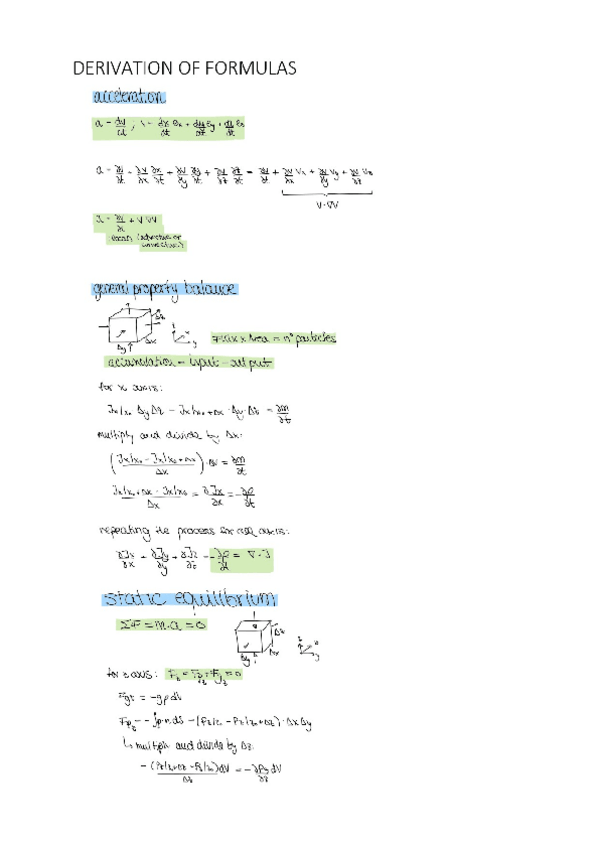 DERIVATION OF FORMULAS
acceleration
a = dv/dt ; v = dx/dt ex + dy/dt ey + dz/dt ez
a = ∂v/∂t + ∂v/∂x ∂x/∂t + ∂v/∂y ∂y/∂t + ∂v/∂z ∂z/∂t = ∂v/∂t + ∂v/∂x Vx + ∂v/∂y Vy + ∂v/∂z Vz
V·∇V
a = ∂v/∂t + V·∇V
general property balance
Δz
Δy Δx
y
Flux x Area = nº particles
accumulation = input - output
for x axis:
Jx|x₀ ΔyΔz - Jx|x₀+Δx · Δy·Δz = ∂m/∂t
multiply and divide by Δx:
(Jx|x₀ - Jx|x₀+Δx / Δx) · dV = ∂m/∂t
Jx|x₀+Δx - Jx|x₀ / Δx = ∂Jx/∂x = -∂ρ/∂t
repeating the process for all axis:
∂Jx/∂x + ∂Jy/∂y + ∂Jz/∂z = -∂ρ/∂t = ∇·J
static equilibrium
ΣF = m·a = 0
Δz
Δy Δx
y
for z axis:
Fgz = -gρdV
Fpz = -∫p·n ds = (Pz|z₀ - Pz|z₀+Δz) · ΔxΔy
↳ multiply and divide by Δz:
-(Pz|z₀+Δz - Pz|z₀)dV / Δz = -∂P/∂z dV